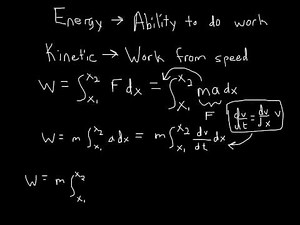 Energy → Ability to do work
Kinetic → Work from speed
W = ∫_{x₁}^{x₂} F dx = ∫_{x₁}^{x₂} ma dx
F
dv/dt = dv/x v
W = m ∫_{x₁}^{x₂} a dx = m ∫_{x₁}^{x₂} dv/dt dx
W = m ∫_{x₁}^{x₂}